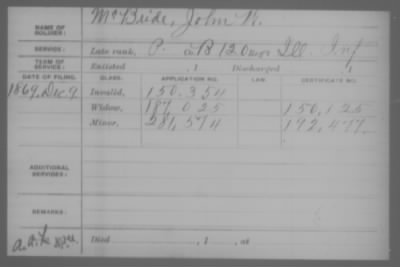 NAME OF SOLDIER: McBride, John W.
SERVICE: Late rank, P. Co. B 120 Ill. Inf
TERM OF SERVICE: Enlisted , 1 Discharged , 1
DATE OF FILING. CLASS. APPLICATION NO. LAW. CERTIFICATE NO.
1869, Dec 9 Invalid, 150.354
Widow, 187.025 150.125
Minor, 281,574 192,477
ADDITIONAL SERVICES:
REMARKS:
Died , 1 , at